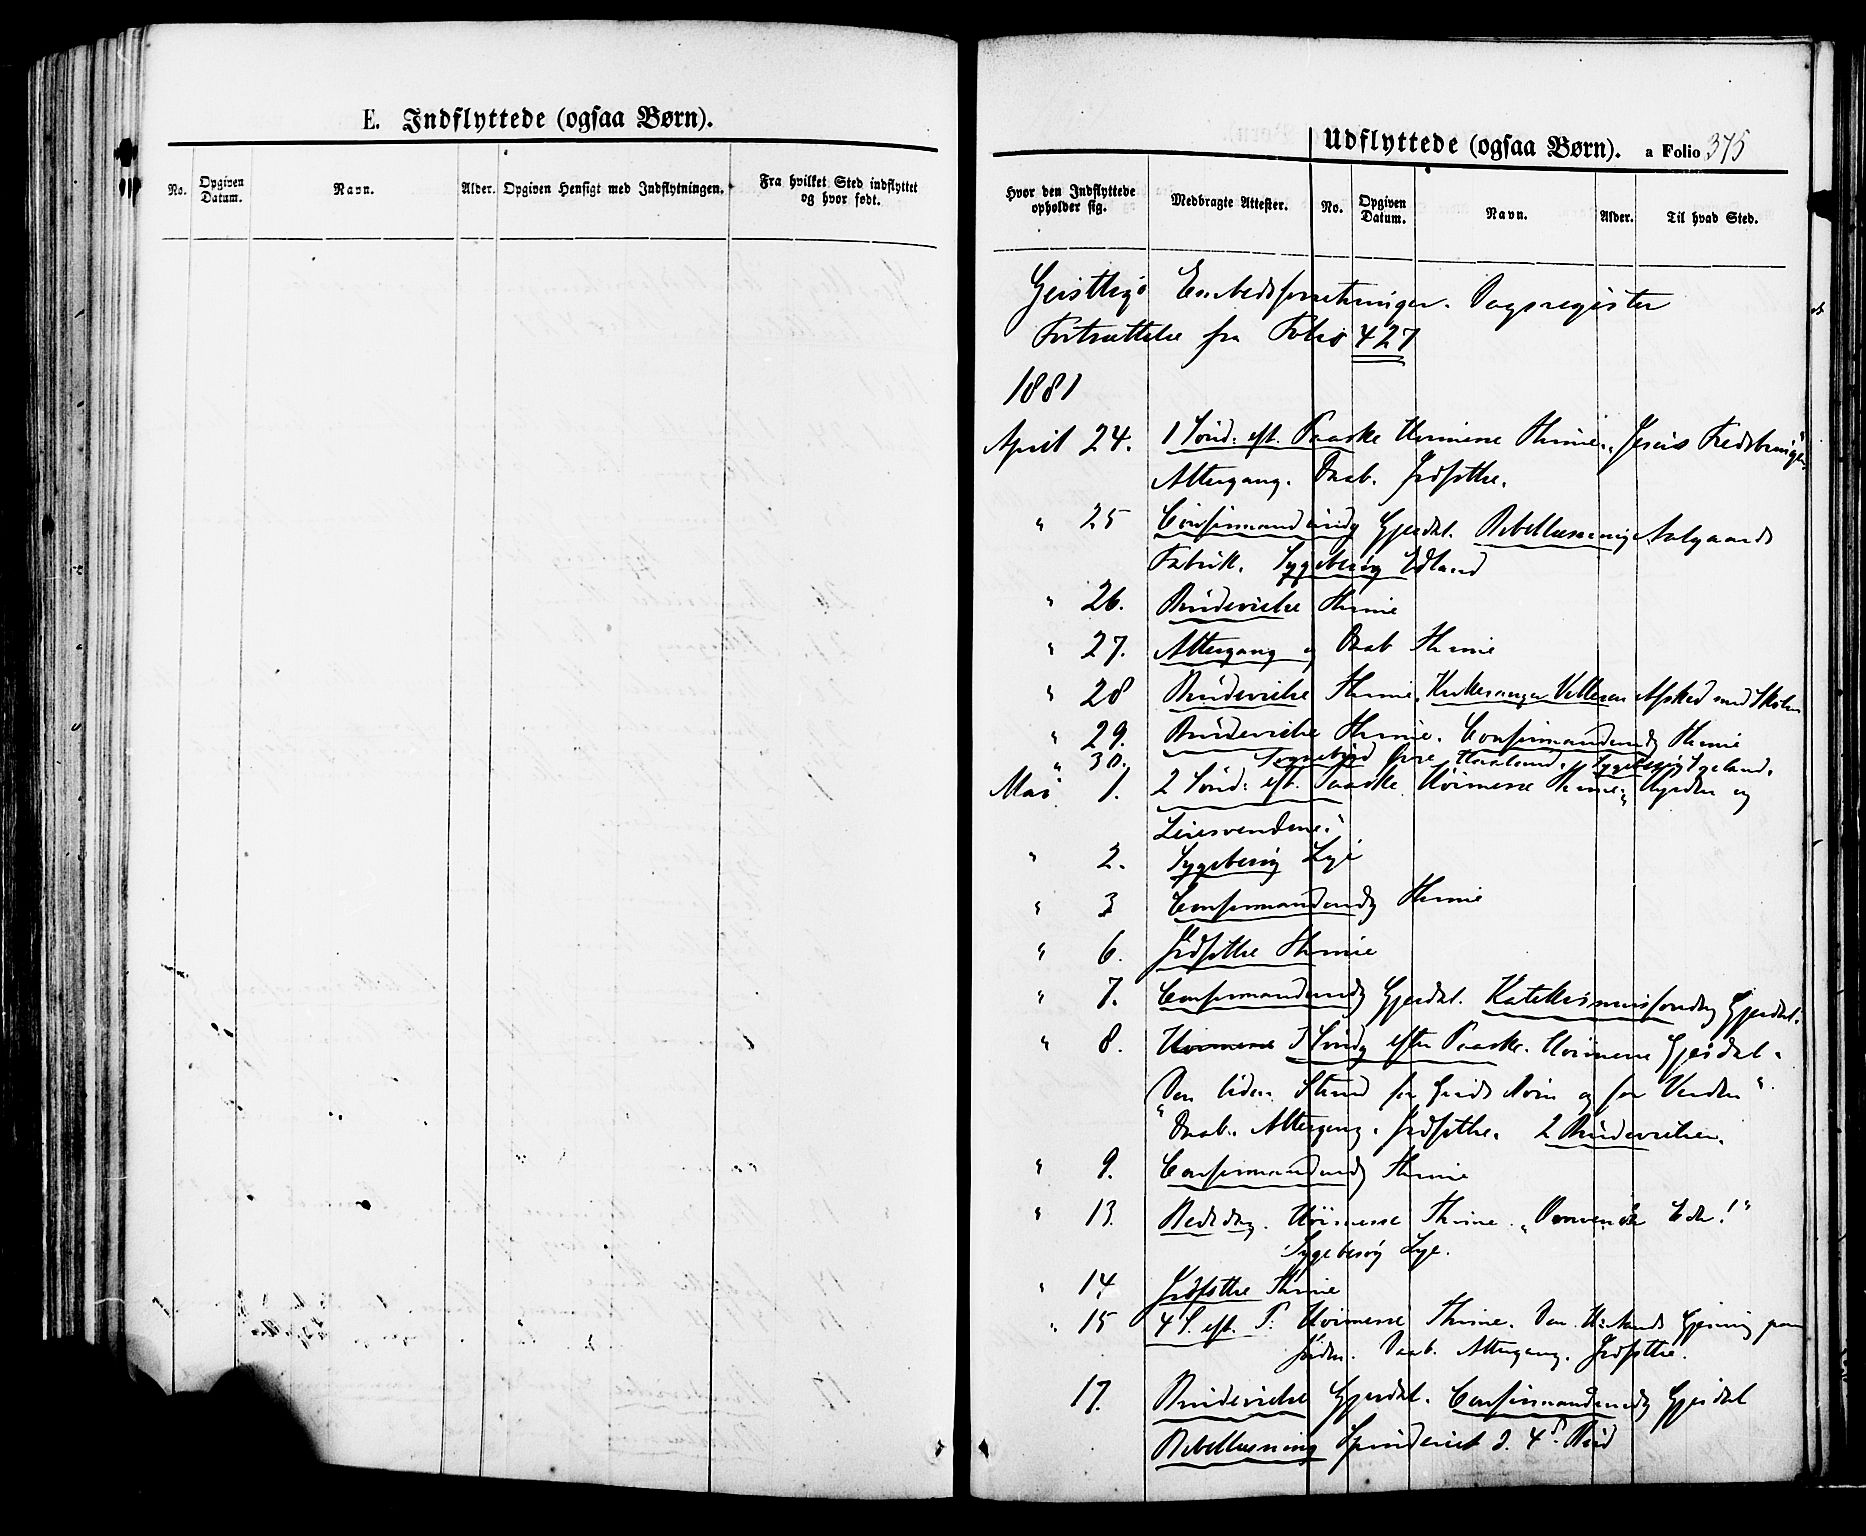 E. Indflyttede (ogsaa Børn).
No.
Opgiven Datum.
Navn.
Alder.
Opgiven Hensigt med Indflytningen.
Fra hvilket Sted indflyttet og hvor født.
Udflyttede (ogsaa Børn). a Folio 375
Hvor den Indflyttede opholder sig.
Medbragte Attester.
No.
Opgiven Datum.
Navn.
Alder.
Til hvad Sted.
Geistlige Embedsforretninger. Dagsregister
Fortsættelse fra Folio 427
1881
April 24. 1 Sønd. eft. Paaske Høimesse Thime. Jesus Fredsbringer
Altergang. Daab. Jordfæstelse.
" 25 Confirmandundg Gjesdal. Bibellæsning Aalgaards
Fabrik. Sygebesøg Edland
" 26. Brudevielse Thime
" 27. Altergang og Daab Thime
" 28 Brudevielse Thime. Kirkesanger Afsked med Skolen
" 29. Brudevielse Thime. Confirmandundg Thime
" 30. Sognebud Sygebesøg
Mai 1. 2 Sønd. eft. Paaske Høimesse Thime. "Hyrden og
Leiesvendene."
" 2. Sygebesøg Lye
" 3 Confirmandundg Thime
" 6. Jordfæstelse Thime
" 7. Confirmandundg Gjesdal. Gjesdal.
" 8. Høimesse 3 Søndg efter Paaske. Høimesse Gjesdal.
"Den liden Stund for Guds Børn og for Verden".
Daab. Altergang. Jordfæstelse. 2 Brudevielser.
" 9. Confirmandundg Thime
" 13. Bededag. Høimesse Thime. "Omvender Eder!"
Sygebesøg Lye.
" 14. Jordfæstelse Thime
" 15 4 S. eft. P. Høimesse Thime. Den Gjerning paa
Jorden. Daab. Altergang. Jordfæstelse.
17. Brudevielse Gjesdal. Confirmandundg Gjesdal
Bibellæsning